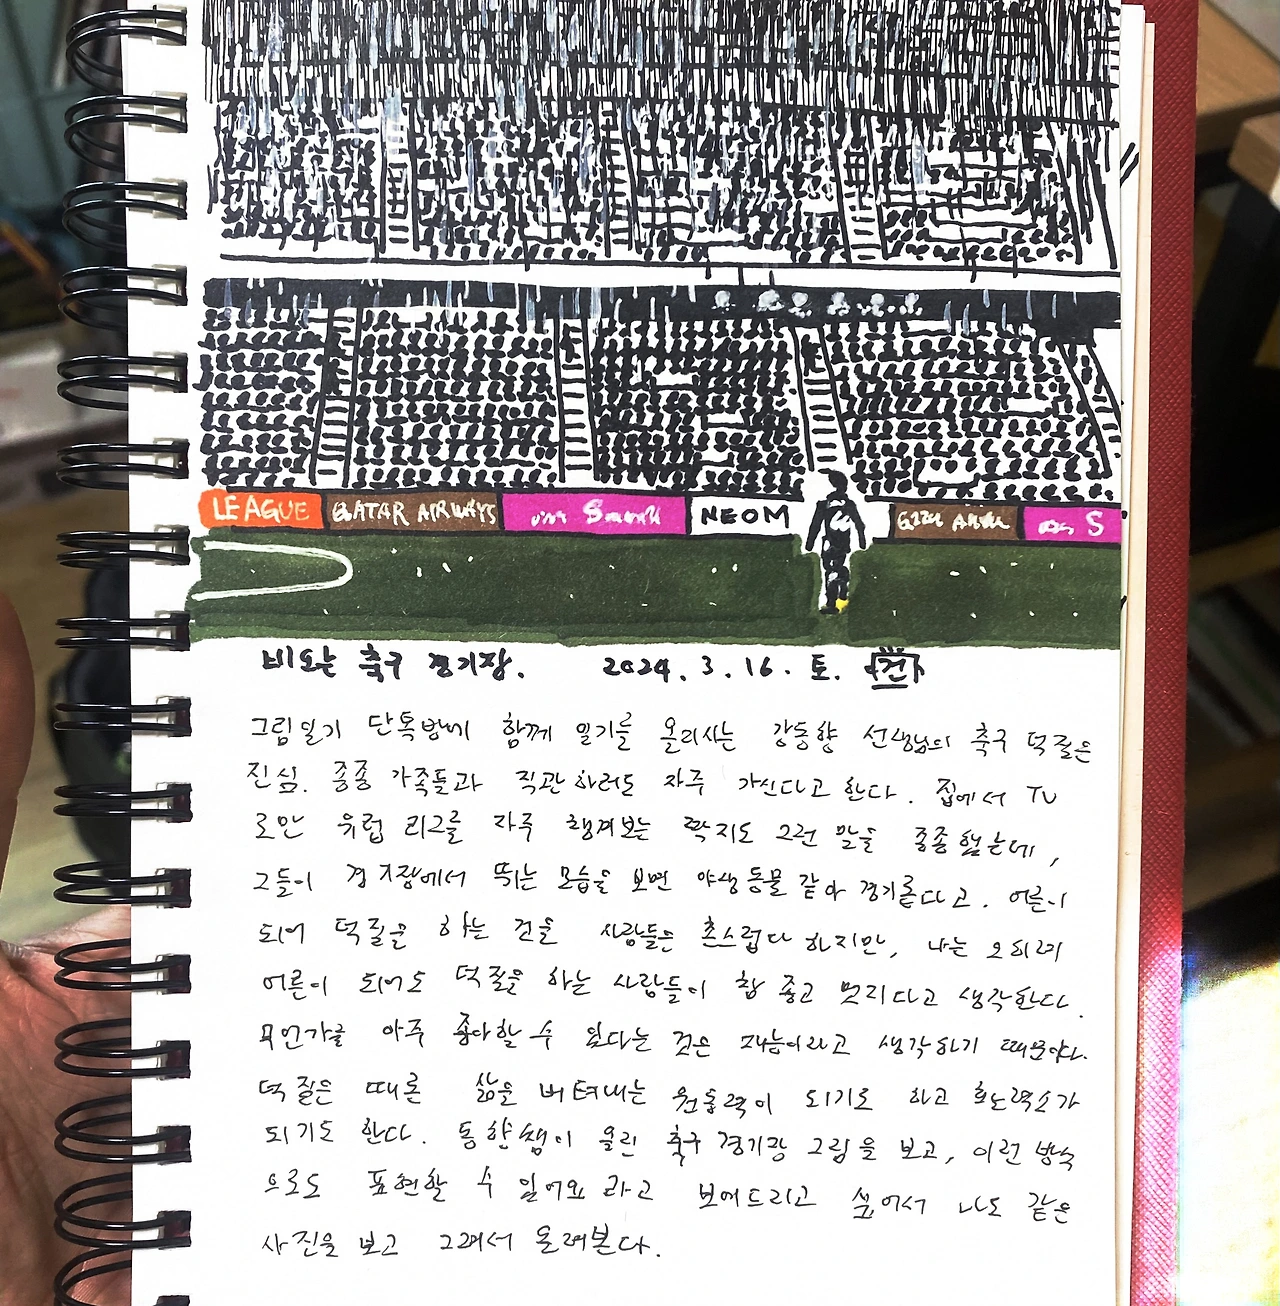 LEAGUE QATAR AIRWAYS NEOM S
비오는 축구 경기장. 2024. 3. 16. 토. 건
그림일기 단톡방에 함께 일기를 올리시는 강동향 선생님의 축구 덕질은
진심. 종종 가족들과 직관하러도 자주 가신다고 한다. 집에서 TV
로만 유럽 리그를 자주 챙겨보는 짝지도 그런 말을 종종 했는데,
그들이 경기장에서 뛰는 모습을 보면 야생동물 같아 경이롭다고. 어른이
되어 덕질을 하는 건을 사람들은 촌스럽다 하지만, 나는 오히려
어른이 되어도 덕질을 하는 사람들이 참 좋고 멋지다고 생각한다.
무언가를 아주 좋아할 수 있다는 것은 재능이라고 생각하기 때문이다.
덕질은 때론 삶을 버텨내는 원동력이 되기도 하고 활력소가
되기도 한다. 동향쌤이 올린 축구 경기장 그림을 보고, 이런 방식
으로도 표현할 수 있어요 라고 보여드리고 싶어서 나도 같은
사진을 보고 그려서 올려본다.